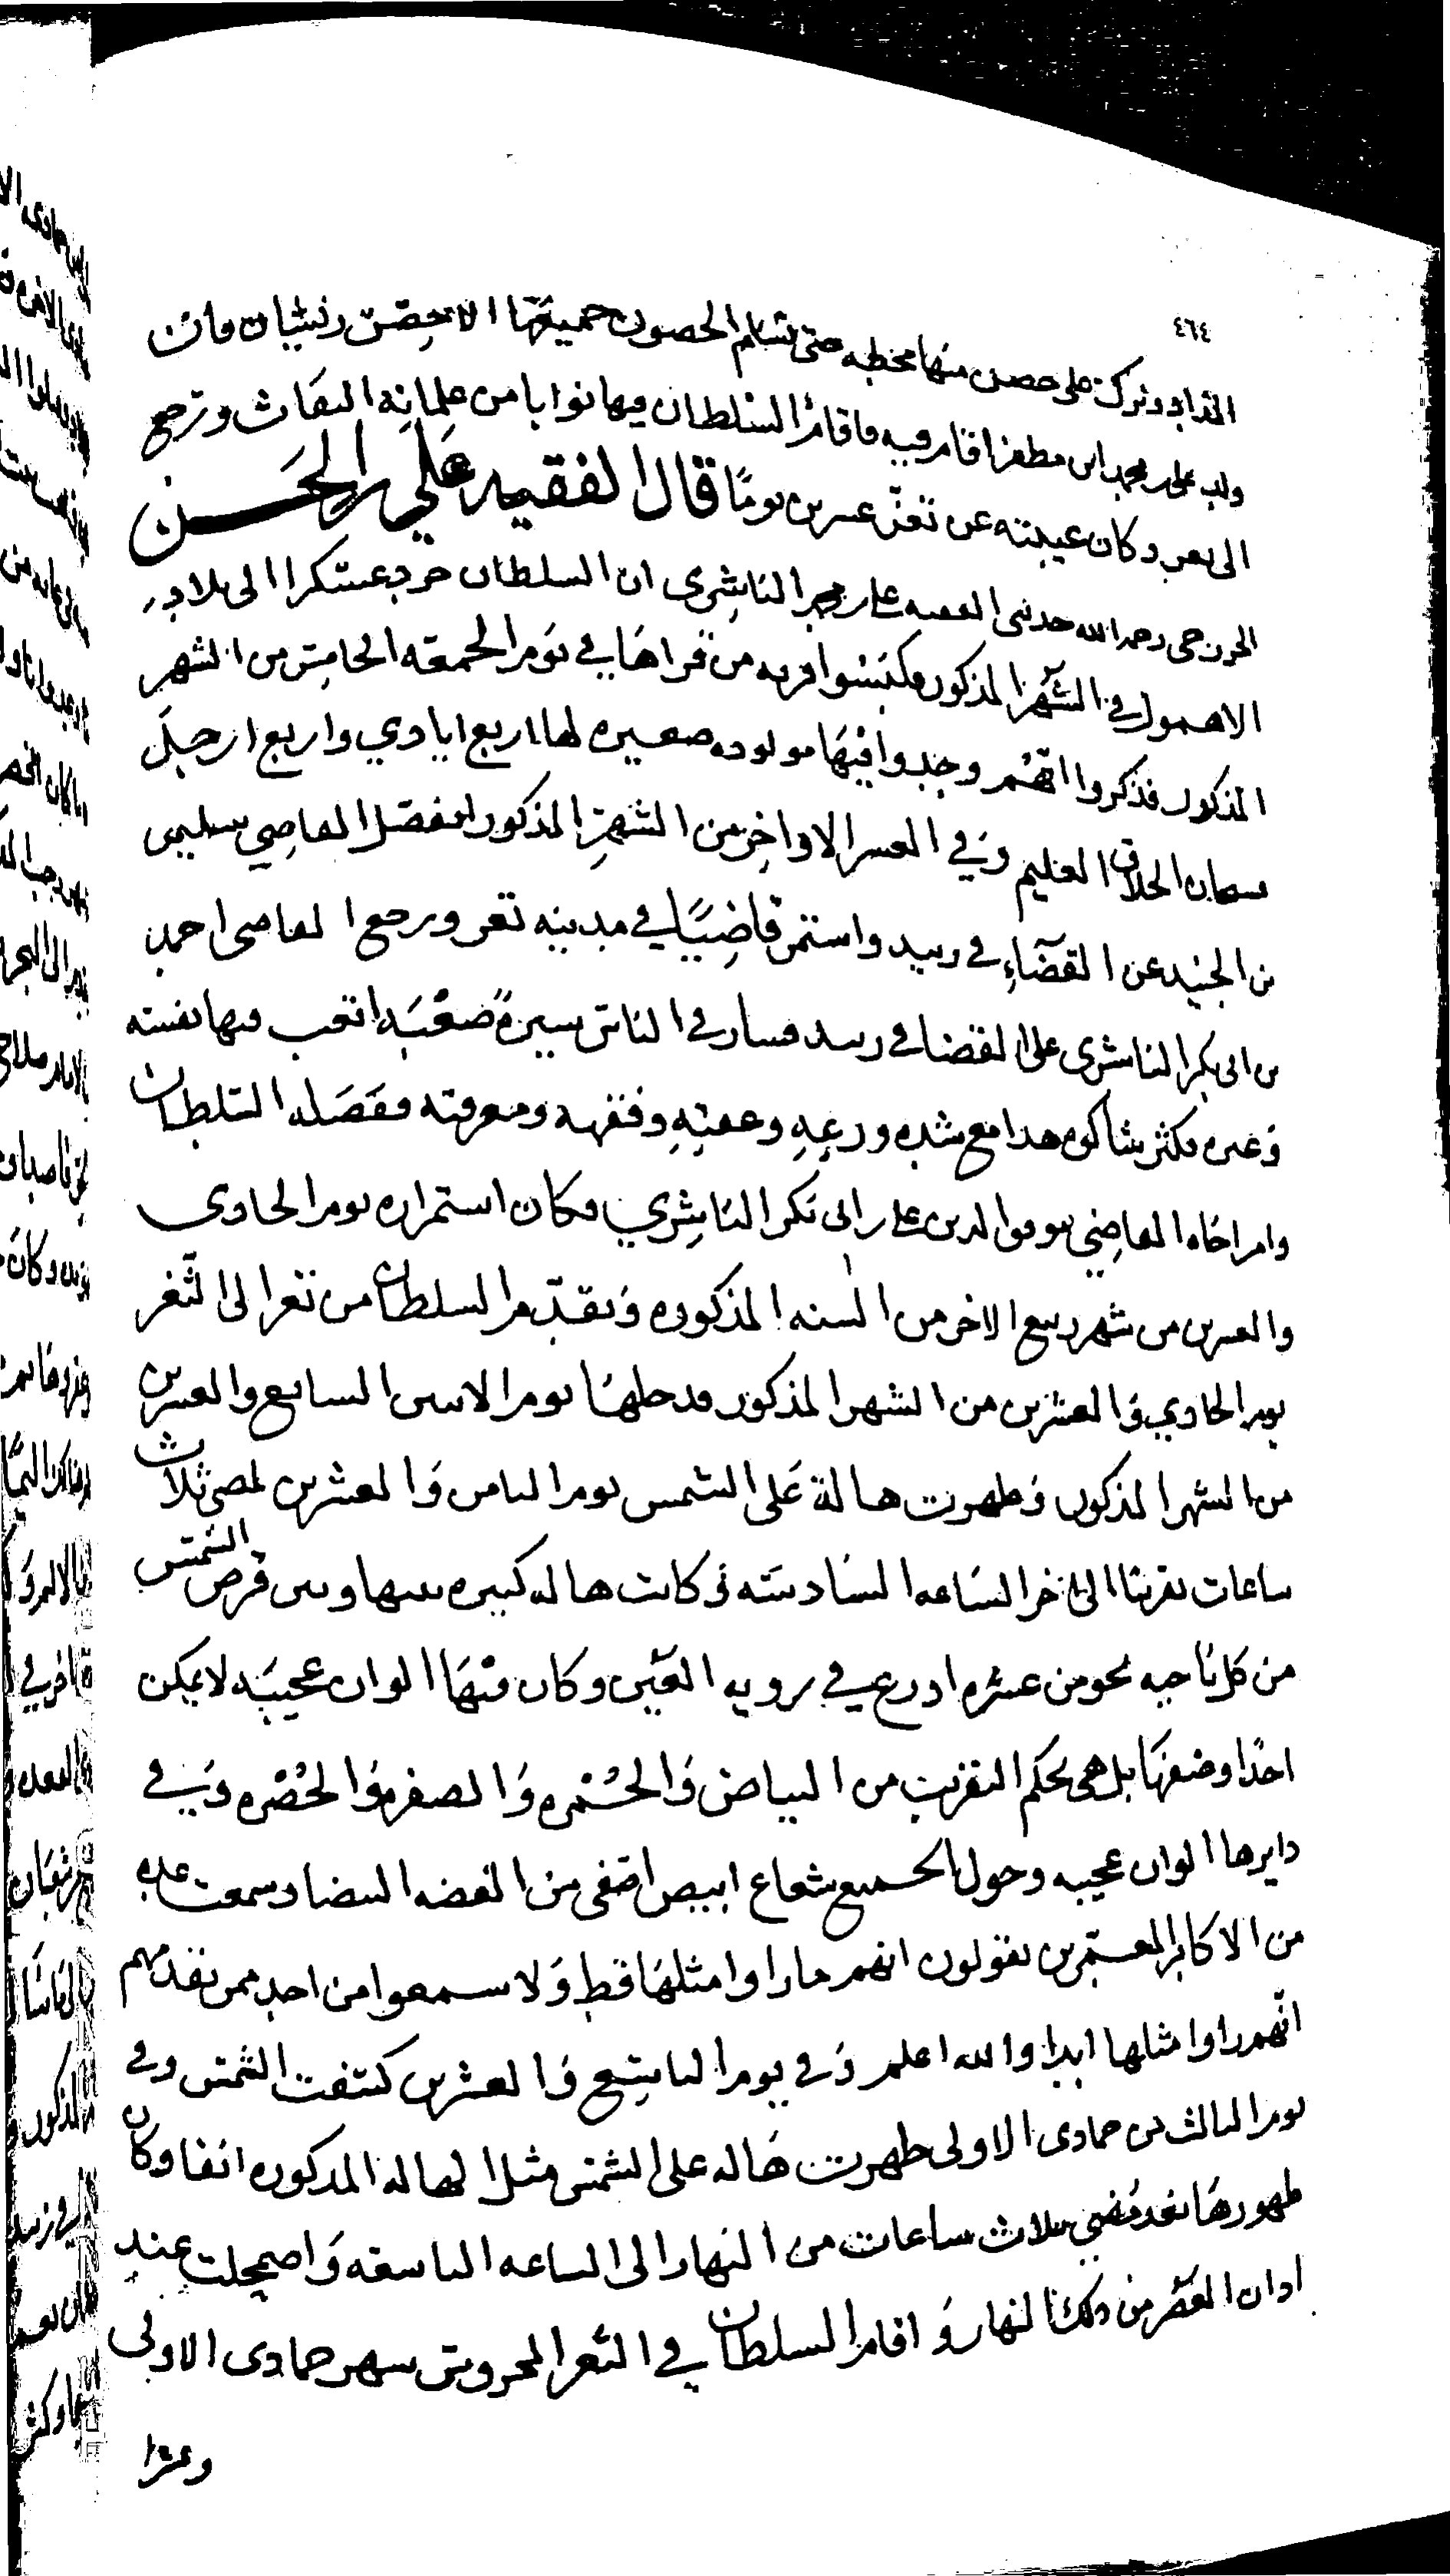 ٤٦٤
وترك على حصن منها محطه حتى تسلم الحصون جميعها الا حصن فان
ولد على بن محمد ابن مظفر اقام فيه فاقام السلطان فيها نوابا من غلمانه الثقات ورجع
الى تعز وكان غيبته عن تعز عسرين يومًا قال الفقيه علي بن الحسن
الخزرجى رحمه الله حدثنى الفقيه على بن محمد الناشرى ان السلطان جرد عسكرا الى بلاد
الاهمول في الشهر المذكور فكبسوا قريه من قراها في يوم الجمعه الخامس من الشهر
المذكور فذكروا انهم وجدوا فيها مولوده صغيره لها اربع ايادي واربع ارجل
سبحان الخلاق العليم وفي العسر الاواخر من الشهر المذكور انفصل القاضي سليمن
بن الجنيد عن القضآء في زبيد واستمر قاضيًا في مدينه تعز ورجع القاضى احمد
بن ابى بكر الناشرى على القضا في زبيد فسار في الناس سيرةً صعبه اتعب فيها نفسه
وغيره فكثر شاكوه هدا مع شده ورعه وعفته وفقهه ومعرفته ففصله السلطان
وامر اخاه القاضي موفق الدين على بن ابى بكر الناشري فكان استمراره يوم الحادى
والعسرين من شهر ربيع الاخر من السنه المذكوره وتقدّم السلطان من تعز الى الثغر
يوم الحادي والعشرين من الشهر المذكور فدخلها يوم الاثنين السابع والعسرين
من الشهر المذكور وظهرت هالة على الشمس يوم الثامن والعشرين لمضى ثلاث
ساعات تقريبًا الى اخر الساعه السادسه وكانت هاله كبيره بينها وبين قرص الشمس
من كل ناحيه نحو من عشره ادرع في رويه العين وكان فيها الوان عجيبه لا يمكن
احدًا وصفها بل هى بحكم التقريب من البياض والحمره والصفره والخضره وفي
دايرها الوان عجيبه وحول الجميع شعاع ابيض اصفى من الفضه البيضا وسمعت عده
من الاكابر المعمّرين يقولون انهم ما راوا مثلها قط ولا سمعوا من احد ممن تقدمهم
انّهم راوا مثلها ابدا والله اعلم وفي يوم التاسع والعشرين كسفت الشمس وفي
يوم الثالث من جمادى الاولى ظهرت هاله على الشمس مثل الهاله المذكوره انفا وكان
ظهورها بعد مضي ثلاث ساعات من النهار الى الساعه التاسعه واضمحلت عند
ادان العصر من ذلك النهار واقام السلطان في الثغر المحروس شهر جمادى الاولى